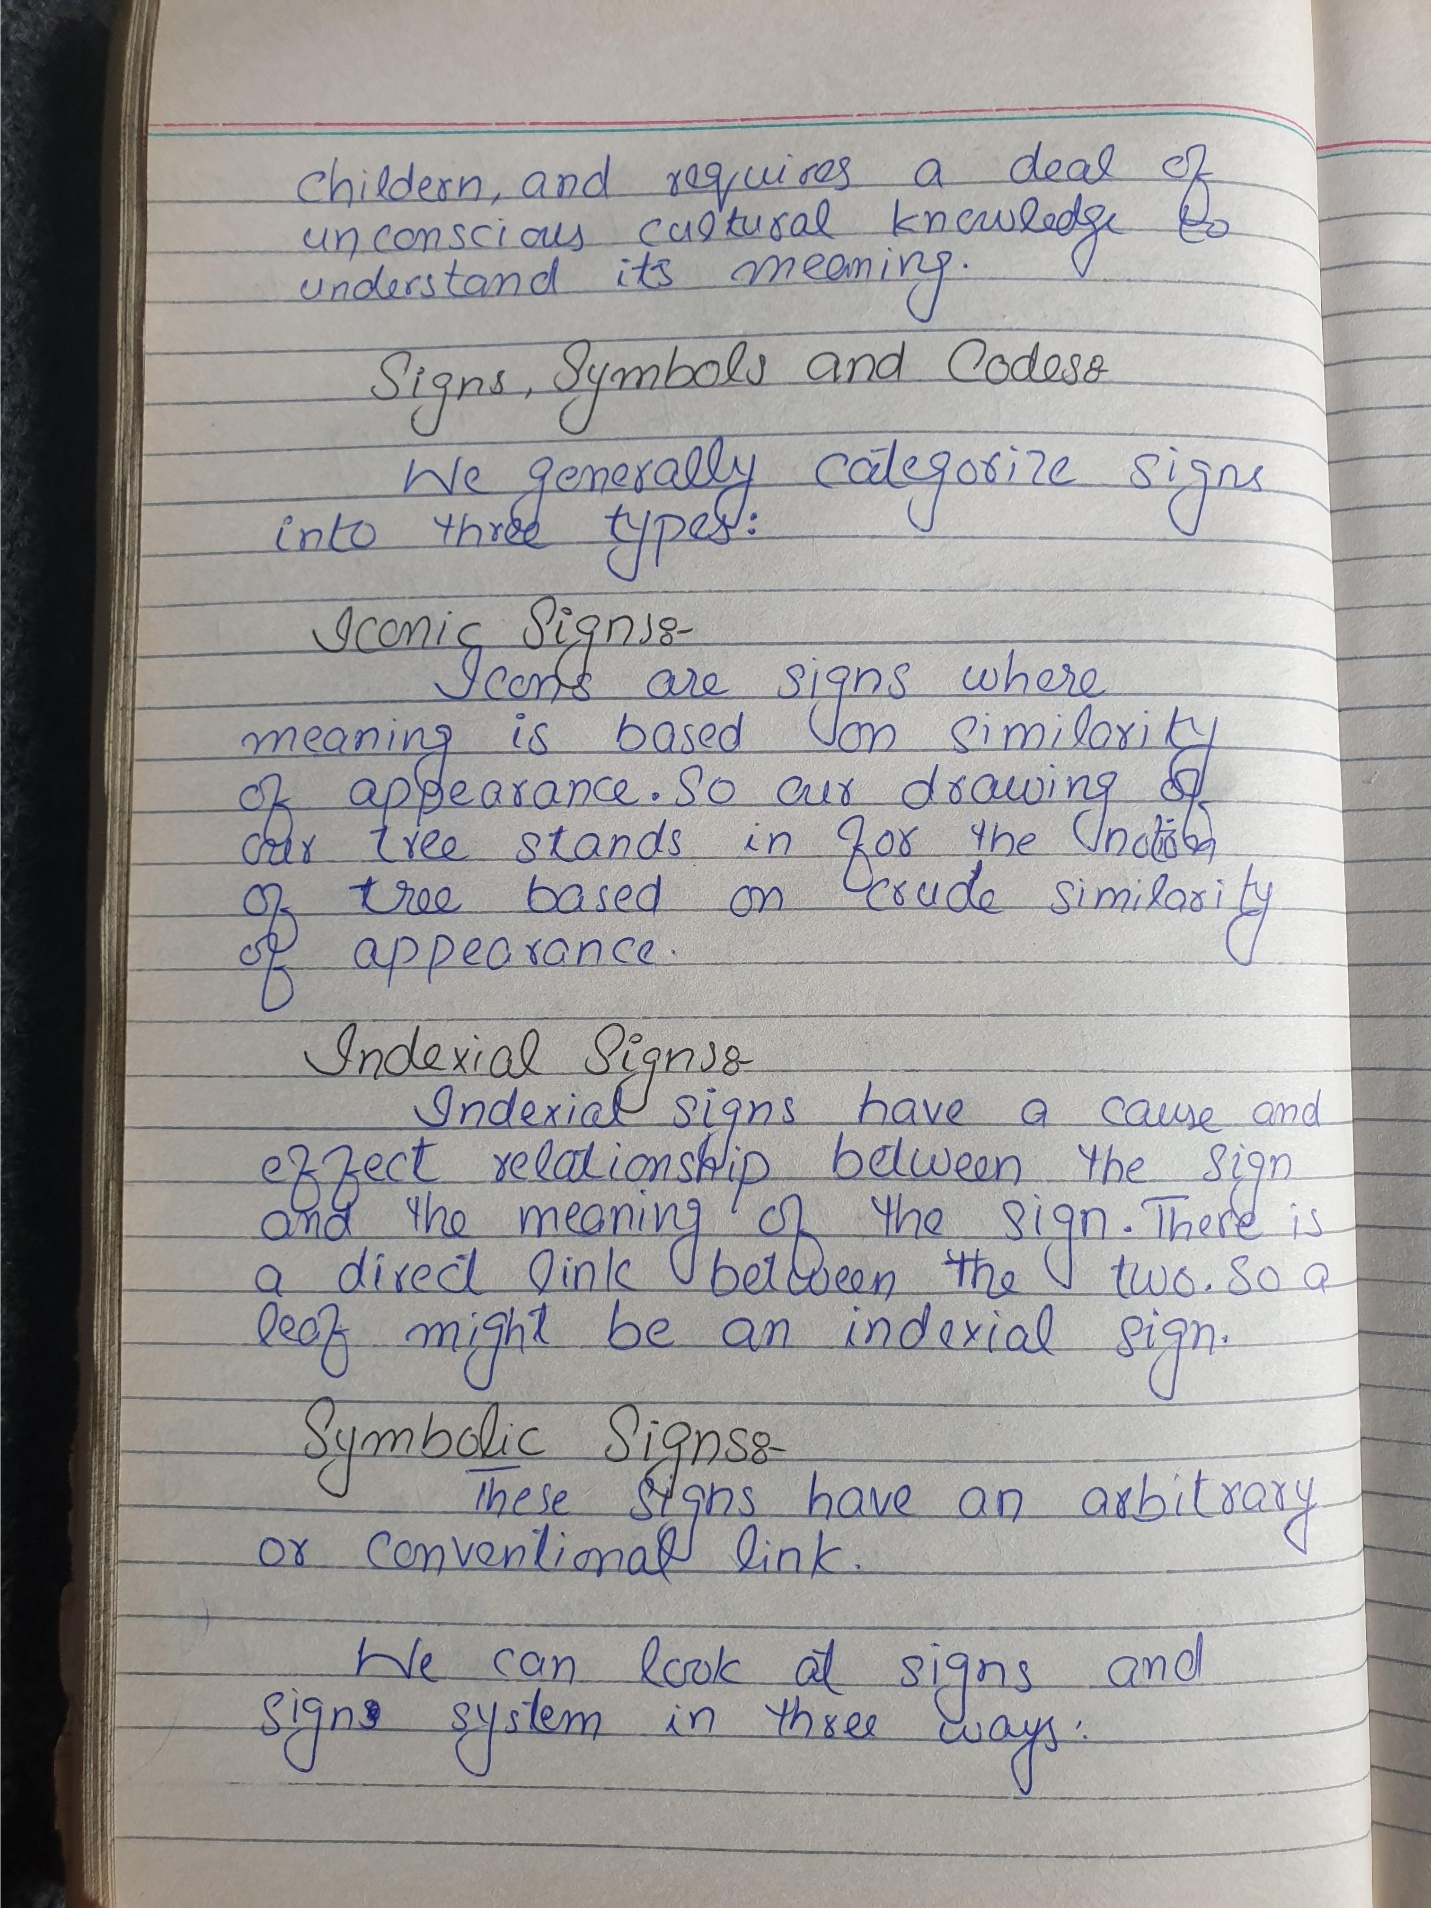 childern, and requires a deal of
unconscious cultural knowledge to
understand its meaning.
Signs, Symbols and Codes:
We generally categorize signs
into three types:
Iconic Signs:-
Icons are signs where
meaning is based on similarity
of appearance. So our drawing of
our tree stands in for the notion
of tree based on crude similarity
of appearance.
Indexial Signs:-
Indexial signs have a cause and
effect relationship between the sign
and the meaning of the sign. There is
a direct link between the two. So a
leaf might be an indexial sign.
Symbolic Signs:-
These signs have an arbitrary
or conventional link.
We can look at signs and
signs system in three ways: